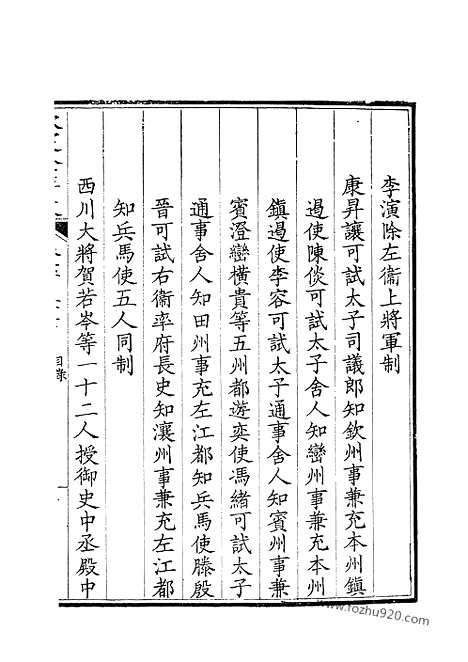 李演除左衞上將軍制
康昇讓可試太子司議郎知欽州事兼充本州鎮
遏使陳倓可試太子舍人知巒州事兼充本州
鎮遏使李容可試太子通事舍人知賓州事兼
賓澄巒橫貴等五州都遊奕使馮緒可試太子
通事舍人知田州事充左江都知兵馬使滕殷
晉可試右衞率府長史知瀼州事兼充左江都
知兵馬使五人同制
西川大將賀若岑等一十二人授御史中丞殿中
目錄
www.fozhu920.com